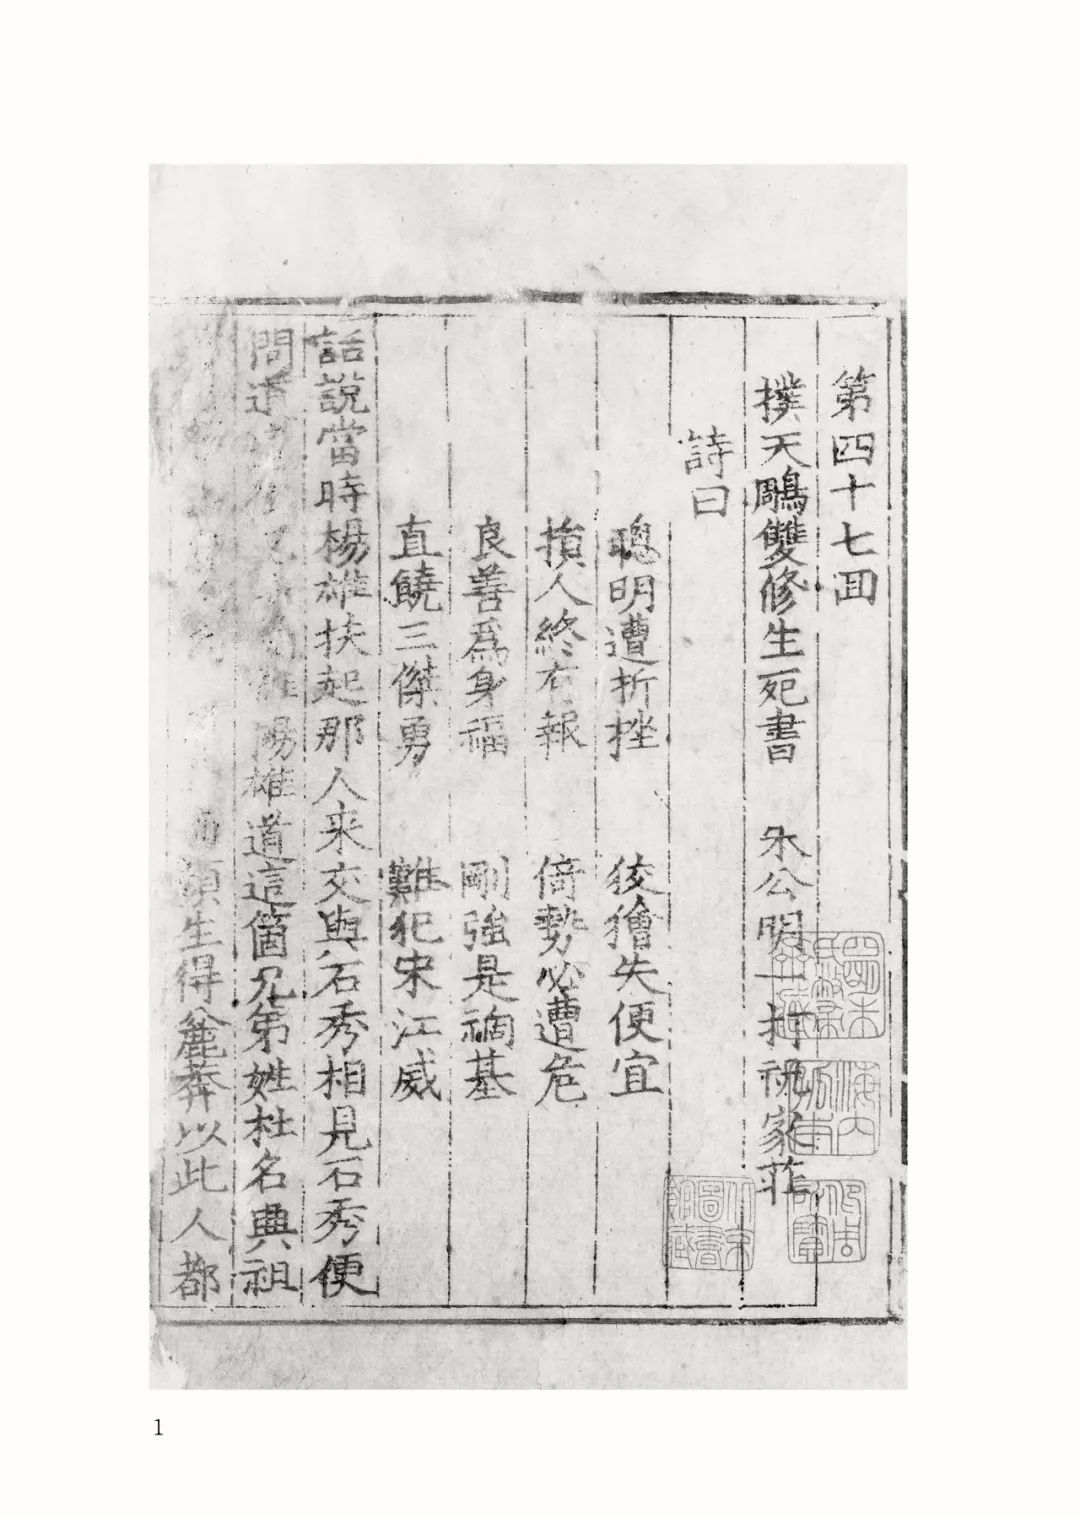 第四十七回
撲天鵰雙修生死書　宋公明一打祝家莊
詩曰
聰明遭折挫　狡獪失便宜
損人終有報　倚勢必遭危
良善為身福　剛強是禍基
直饒三傑勇　難犯宋江威
話說當時楊雄扶起那人来交與石秀相見石秀便
問道　楊雄道這箇兄弟姓杜名典祖
生得麄莽以此人都
1